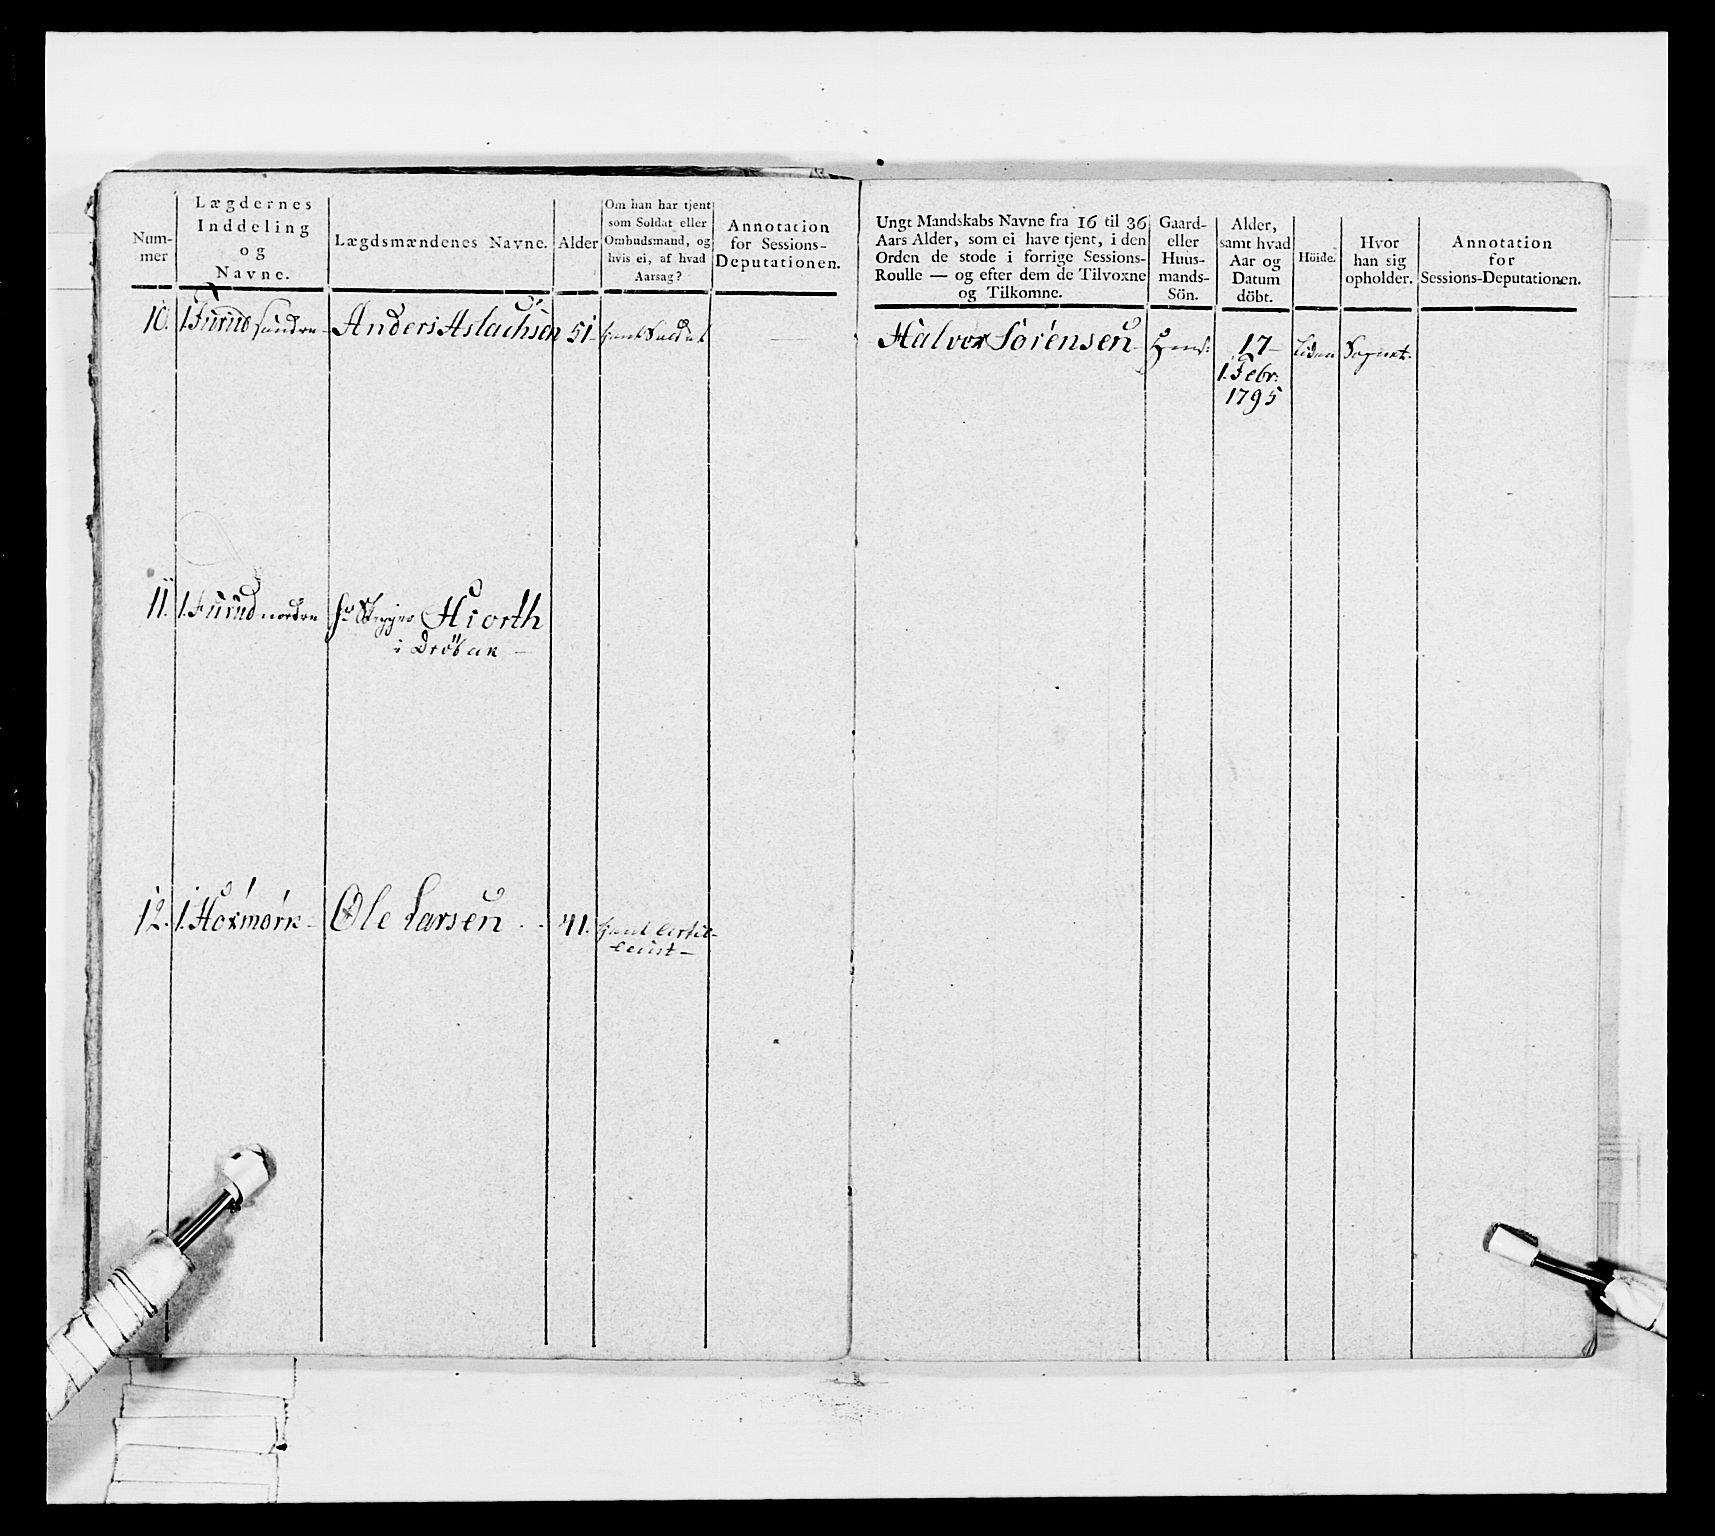 Num-
mer
Lægdernes
Inddeling
og
Navne.
Lægdsmændenes Navne.
Alder
Om han har tjent
som Soldat eller
Ombudsmand, og
hvis ei, af hvad
Aarsag?
Annotation
for Sessions-
Deputationen.
10. 1. Furud søndre - Anders Aslachsen 51 - tjent Soldat
11. 1. Furud nordre Hr Skipper Hiorth
i Dröbak -
12. 1. Hoxmørk - Ole Larsen 41. tjent
Ungt Mandskabs Navne fra 16 til 36
Aars Alder, som ei have tjent, i den
Orden de stode i forrige Sessions-
Roulle — og efter dem de Tilvoxne
og Tilkomne.
Gaard-
eller
Huus-
mands-
Sön.
Alder,
samt hvad
Aar og
Datum
döbt.
Höide.
Hvor
han sig
opholder.
Annotation
for
Sessions-Deputationen.
Halvor Sørensen 17 - Liden Sognet.
1. Febr:
1795